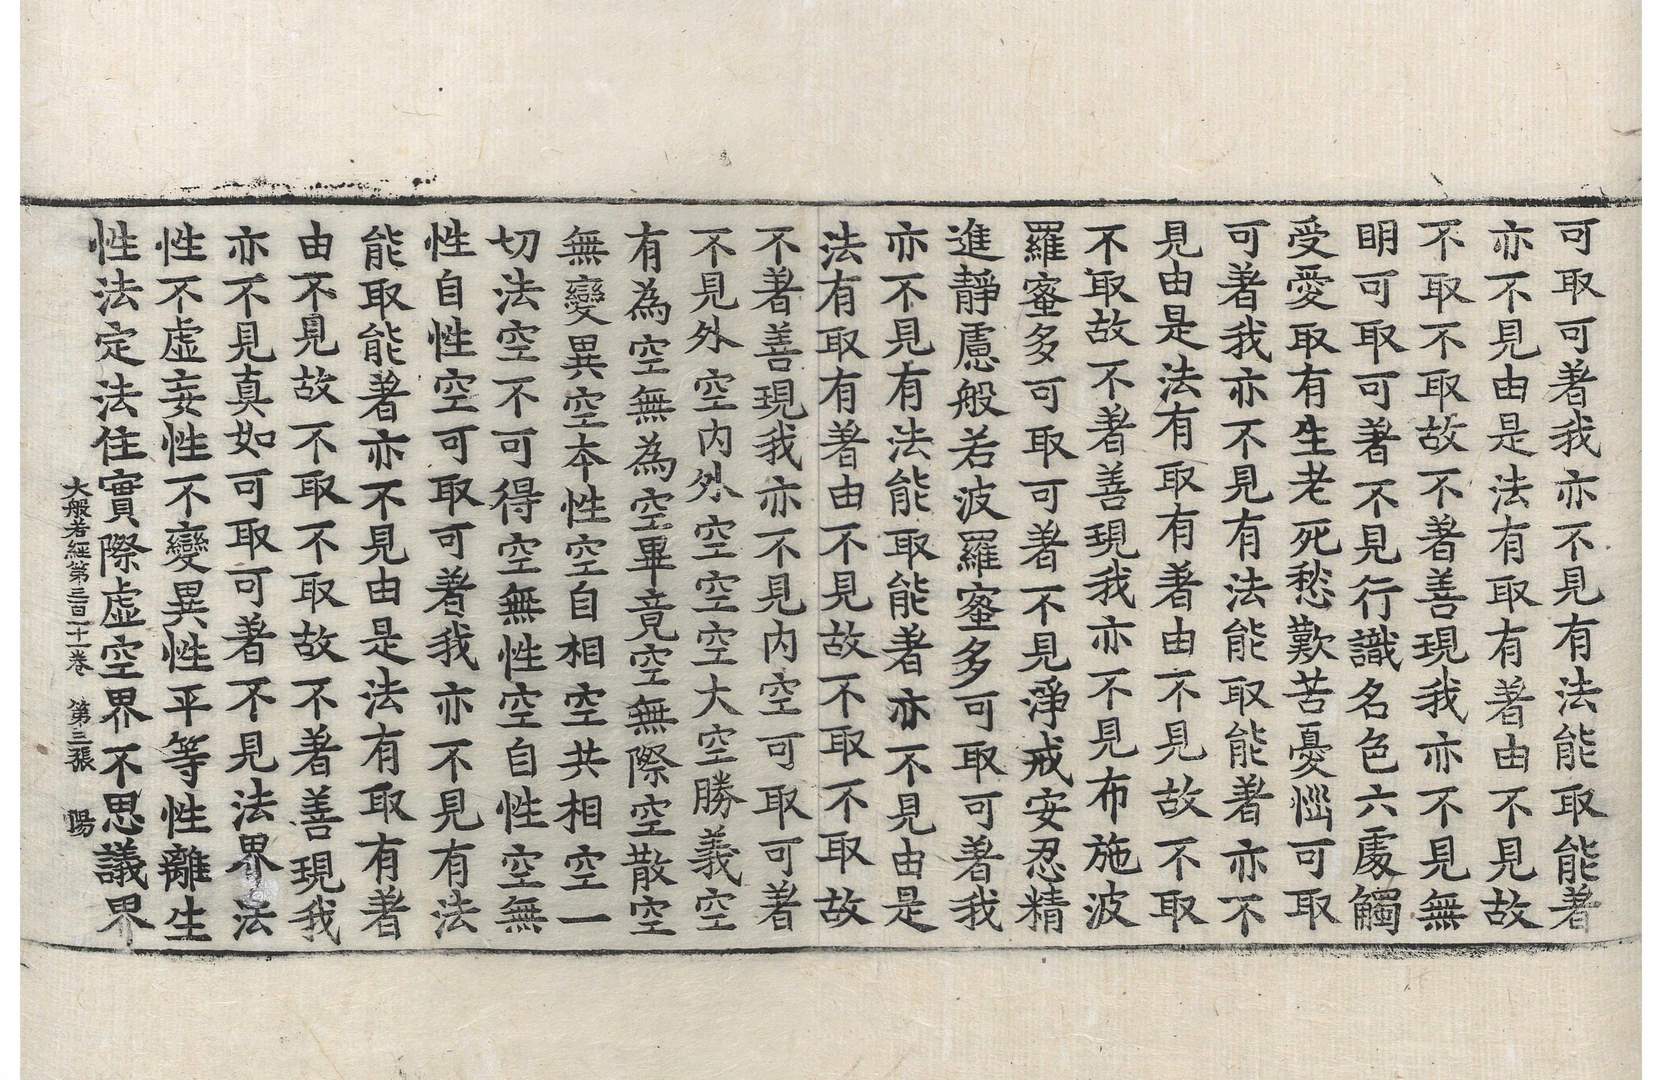 可取可著我亦不見有法能取能著
亦不見由是法有取有著由不見故
不取不取故不著善現我亦不見無
明可取可著不見行識名色六處觸
受愛取有生老死愁歎苦憂惱可取
可著我亦不見有法能取能著亦不
見由是法有取有著由不見故不取
不取故不著善現我亦不見布施波
羅蜜多可取可著不見淨戒安忍精
進靜慮般若波羅蜜多可取可著我
亦不見有法能取能著亦不見由是
法有取有著由不見故不取不取故
不著善現我亦不見內空可取可著
不見外空內外空空空大空勝義空
有為空無為空畢竟空無際空散空
無變異空本性空自相空共相空一
切法空不可得空無性空自性空無
性自性空可取可著我亦不見有法
能取能著亦不見由是法有取有著
由不見故不取不取故不著善現我
亦不見真如可取可著不見法界法
性不虛妄性不變異性平等性離生
性法定法住實際虛空界不思議界
大般若經第三百二十一卷 第三張 陽